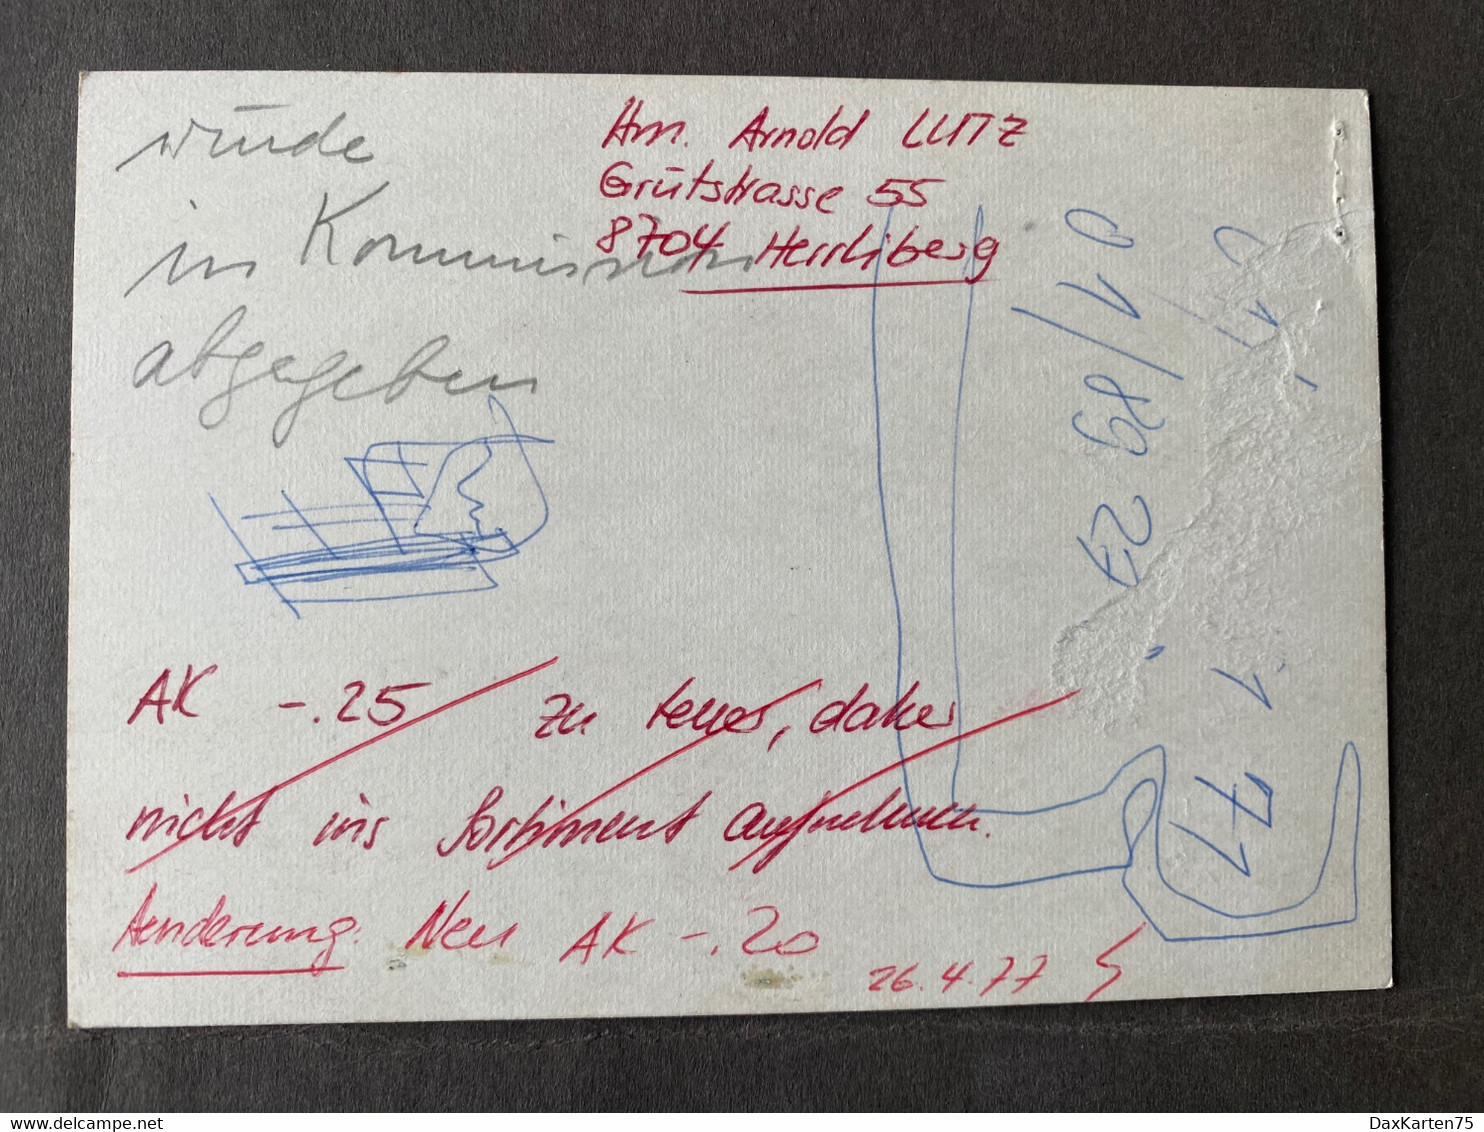 würde
in Kommission
abgegeben
Hrn. Arnold LUTZ
Grütstrasse 55
8704 Herrliberg
AK -.25 zu teuer, daher
nicht ins Sortiment aufnehmen.
Aenderung: Neu AK -.20
26.4.77
01/89 29
77
DaxKarten75
delcampe.net